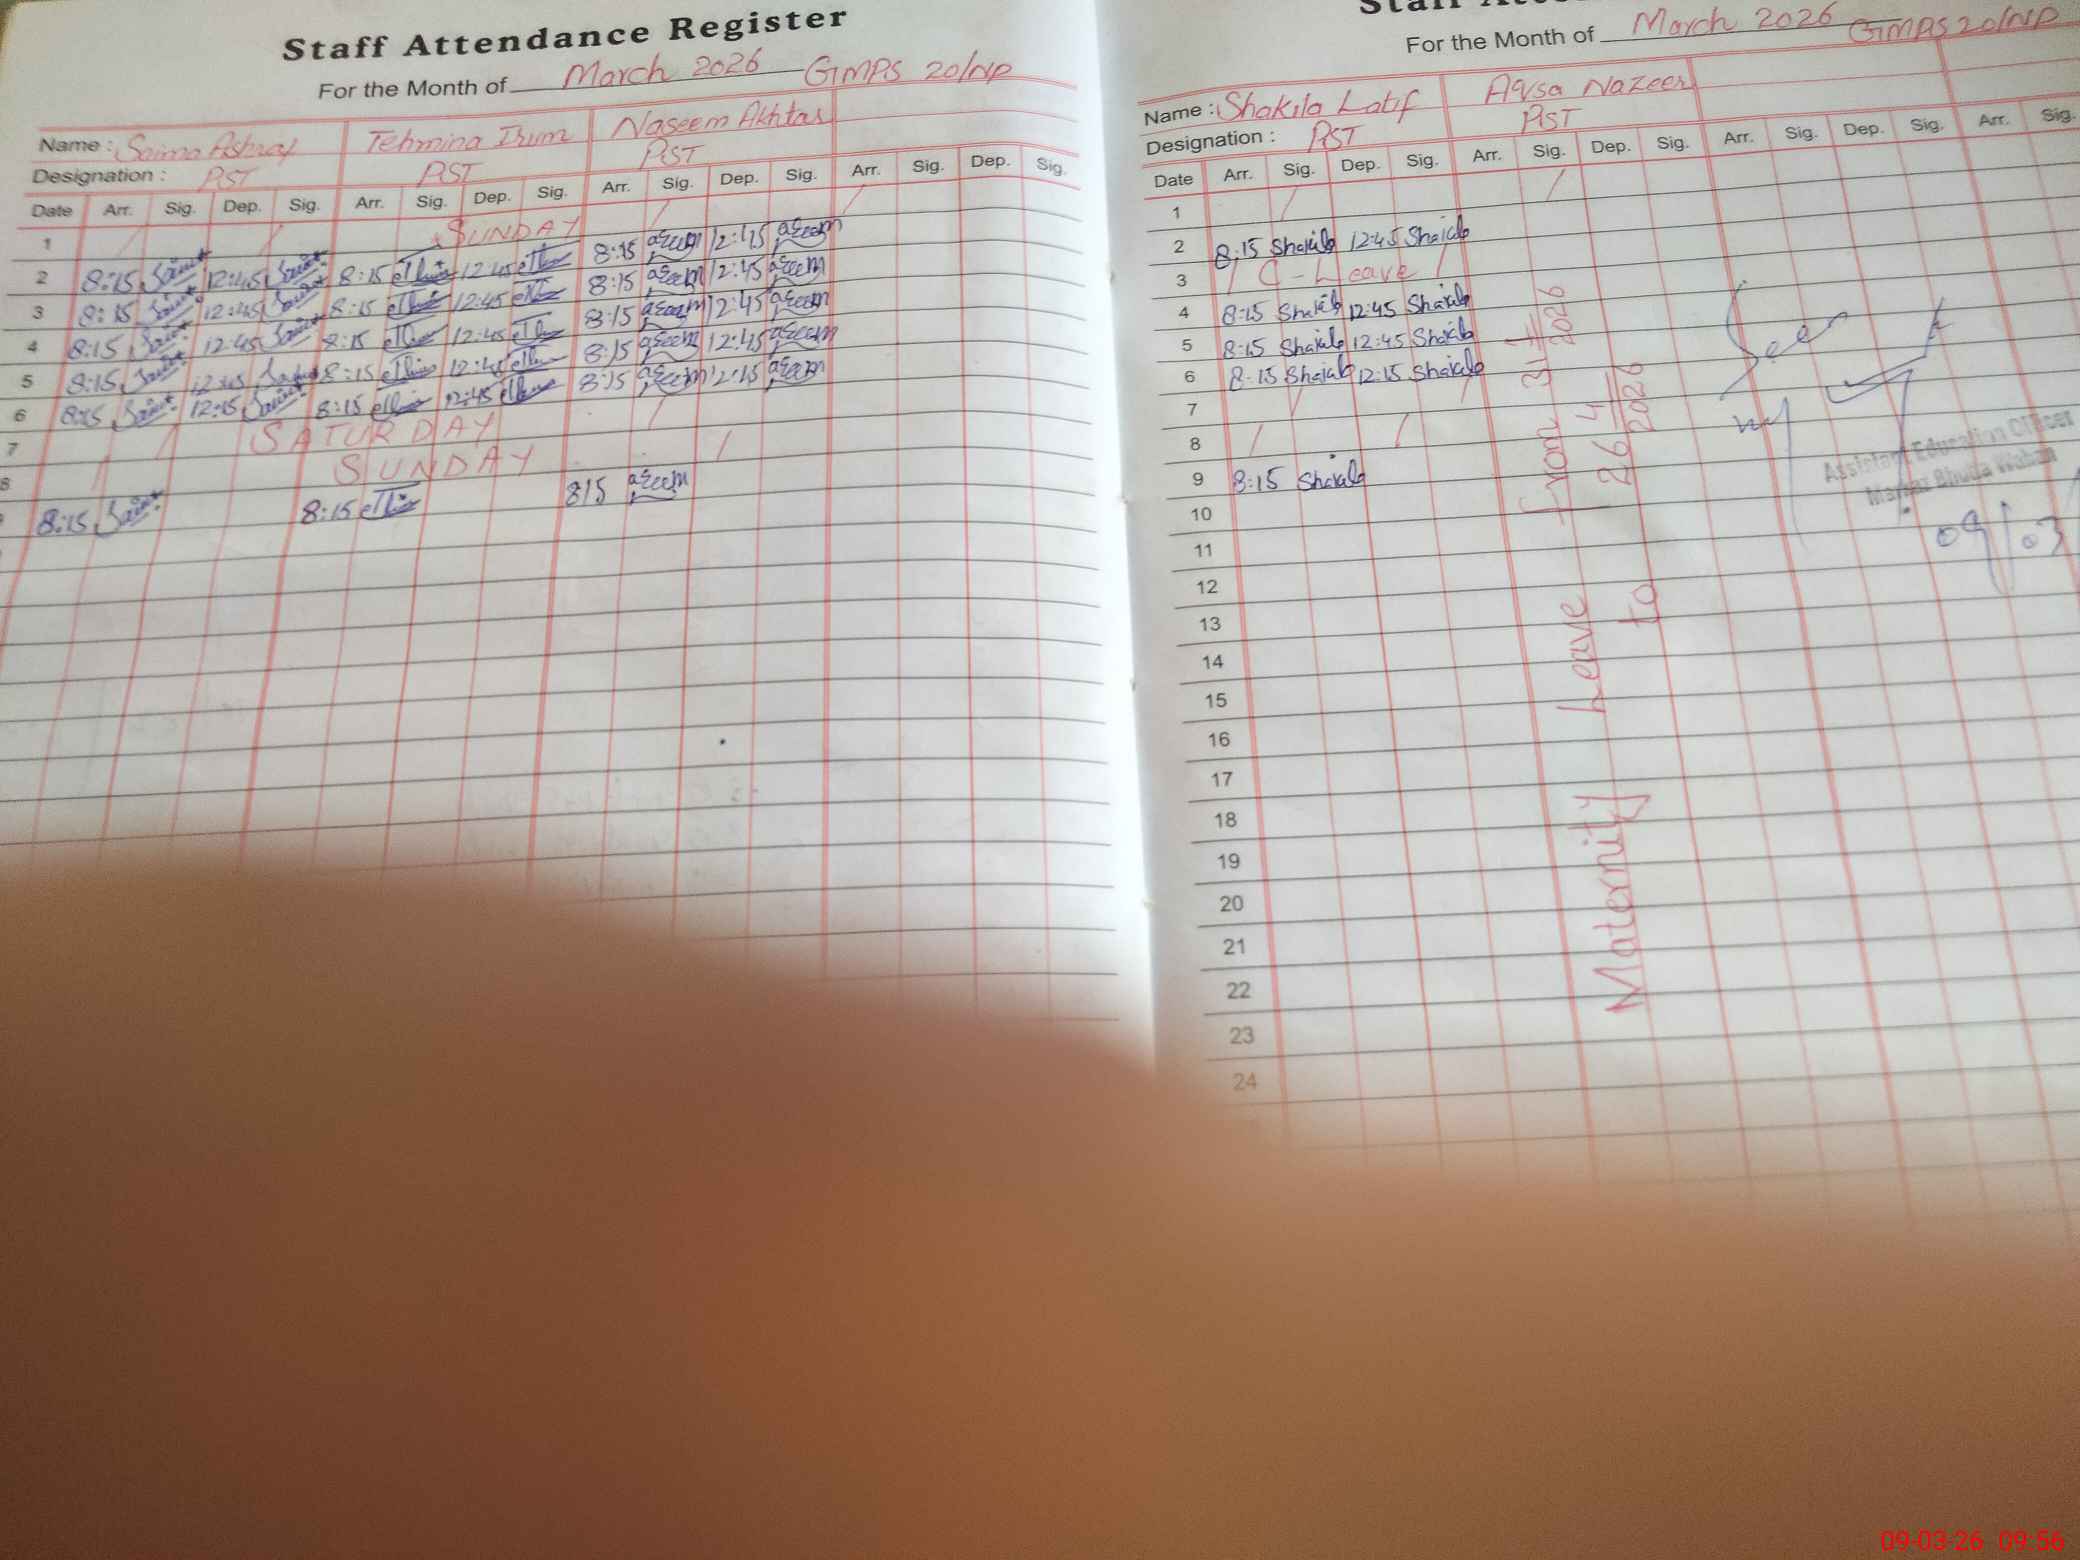 Staff Attendance Register
For the Month of March 2026 GMPS 20/NP
Name : Saima Ashraf Tehmina Irum Naseem Akhtar
Designation : PST PST PST
Date Arr. Sig. Dep. Sig. Arr. Sig. Dep. Sig. Arr. Sig. Dep. Sig. Arr. Sig. Dep. Sig.
1 SUNDAY
2 8:15 12:45 8:15 12:45 8:15 aseem 12:45 aseem
3 8:15 12:45 8:15 12:45 8:15 aseem 12:45 aseem
4 8:15 12:45 8:15 12:45 8:15 aseem 12:45 aseem
5 8:15 12:45 8:15 12:45 8:15 aseem 12:45 aseem
6 8:15 12:15 8:15 12:45 8:15 aseem 12:15 aseem
7 SATURDAY
8 SUNDAY
8:15 8:15 815 aseem
For the Month of March 2026 GMPS 20/NP
Name : Shakila Latif Aqsa Nazeer
Designation : PST PST
Date Arr. Sig. Dep. Sig. Arr. Sig. Dep. Sig. Arr. Sig. Dep. Sig. Arr. Sig.
1
2 8:15 Shakila 12:45 Shakila
3 C-Leave
4 8:15 Shakila 12:45 Shakila
5 8:15 Shakila 12:45 Shakila
6 8:15 Shakila 12:15 Shakila
7
8
9 8:15 Shakila
10
11
12
13
14
15
16
17
18
19
20
21
22
23
24
Maternity Leave from 31/1/2026
to 26/4/2026
Seen
Assistant Education Officer
Markaz Bhudia Wahan
09/03
09-03-26 09:56